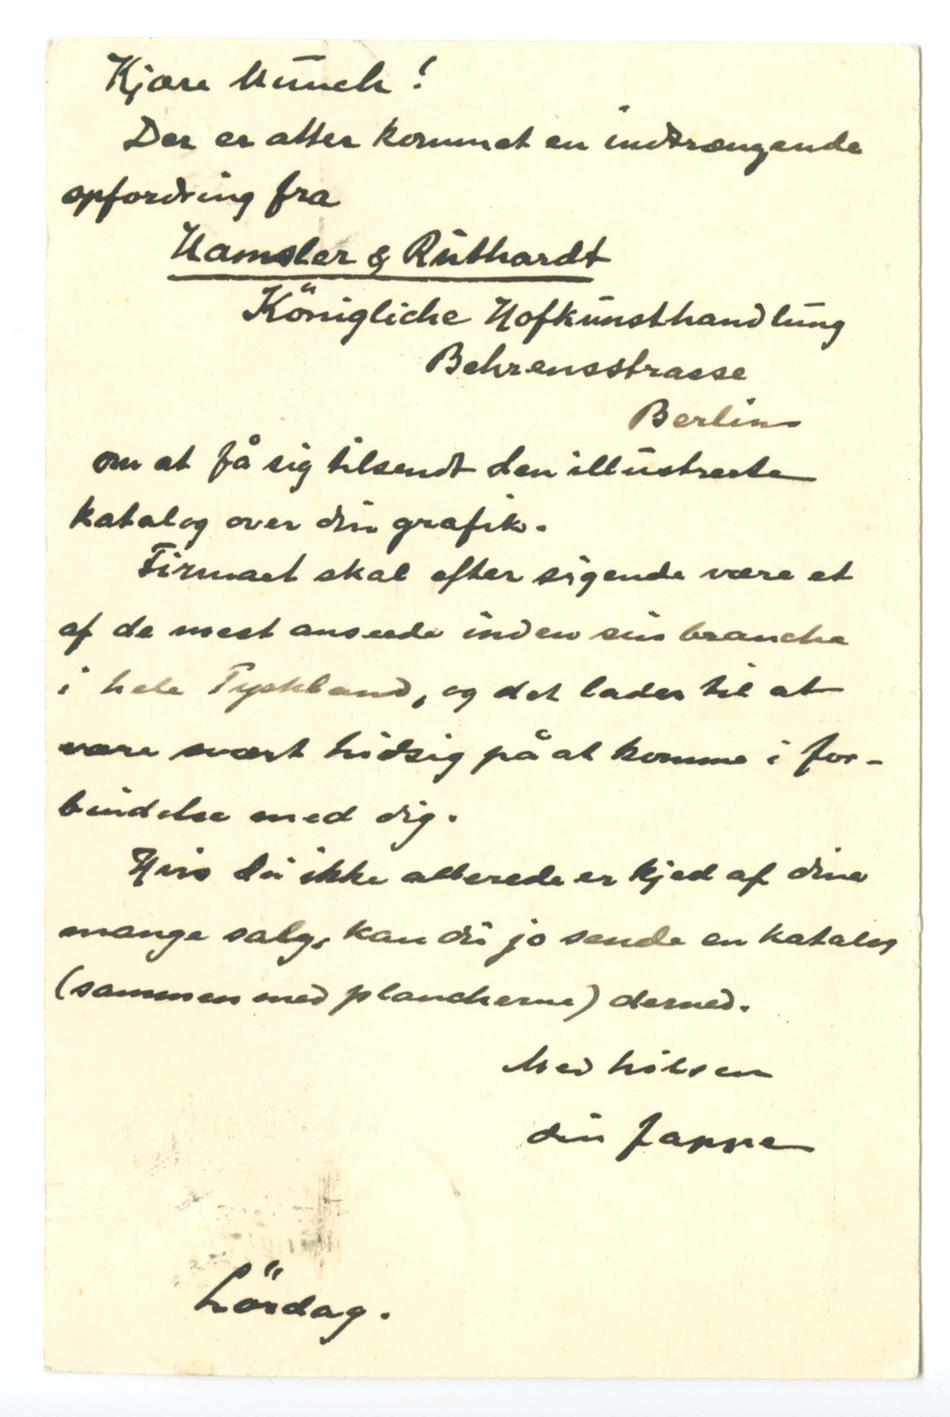 Kjære Munch!
Der er atter kommet en indtrængende
opfordring fra
Hamsler & Ruthardt
Königliche Hofkunsthandlung
Behrensstrasse
Berlin
om at få sig tilsendt den illustrerte
katalog over din grafik.
Firmaet skal efter sigende være et
af de mest ansede inden sin branche
i hele Tyskland, og det lader til at
være svært hidsig på at komme i for-
bindelse med dig.
Hvis du ikke allerede er kjed af dine
mange salg, kan du jo sende en katalog
(sammen med plancherne) derned.
Med hilsen
din Jappe
Lördag.